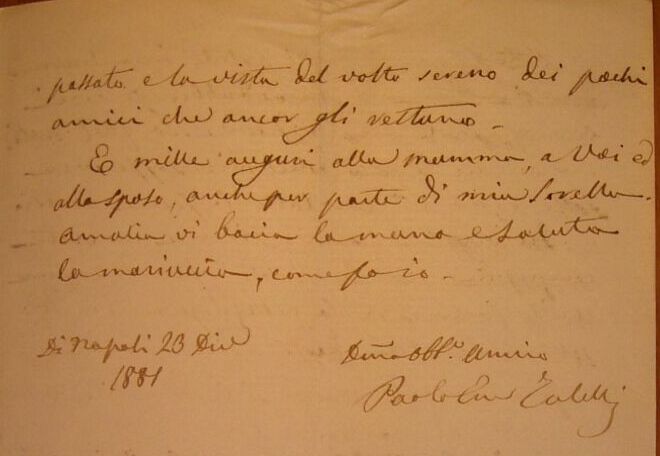 passato e la vista del volto sereno dei pochi
amici che ancor gli restano.
E mille auguri alla mamma, a Voi ed
allo sposo, anche per parte di mia sorella.
Amalia vi bacia la mano e saluta
la mariuccia, come fo io.
Di Napoli 23 Dic
1881
obbl.o amico
Paolo Em